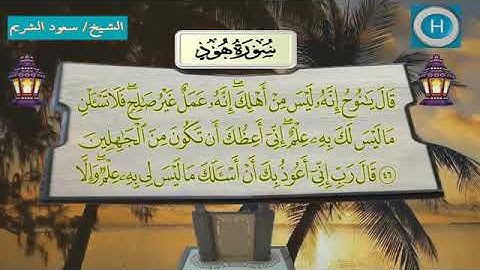 الشيخ/ سعود الشريم
H
سُورَةُ هُودٍ
قَالَ يَٰنُوحُ إِنَّهُۥ لَيْسَ مِنْ أَهْلِكَ ۖ إِنَّهُۥ عَمَلٌ غَيْرُ صَٰلِحٍ ۖ فَلَا تَسْـَٔلْنِ
مَا لَيْسَ لَكَ بِهِۦ عِلْمٌ ۖ إِنِّىٓ أَعِظُكَ أَن تَكُونَ مِنَ ٱلْجَٰهِلِينَ
٤٦ قَالَ رَبِّ إِنِّىٓ أَعُوذُ بِكَ أَنْ أَسْـَٔلَكَ مَا لَيْسَ لِى بِهِۦ عِلْمٌ ۖ وَإِلَّا